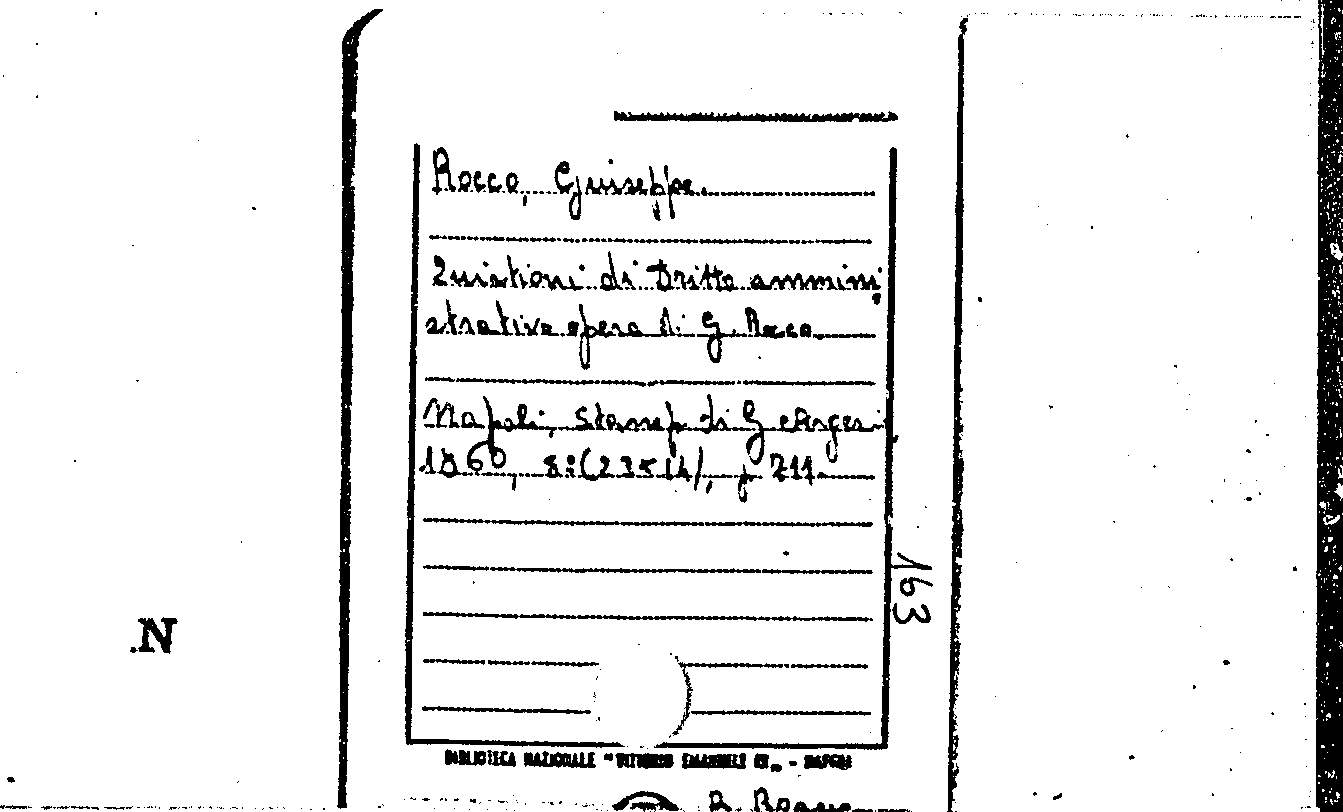 Rocco, Giuseppe.
Quistioni di Dritto ammini
strativo opera di G. Rocco.
Napoli, Stamp. di G.
1860, 8°(23×14), p 211.
163
BIBLIOTECA NAZIONALE "VITTORIO EMANUELE III" - NAPOLI
N.